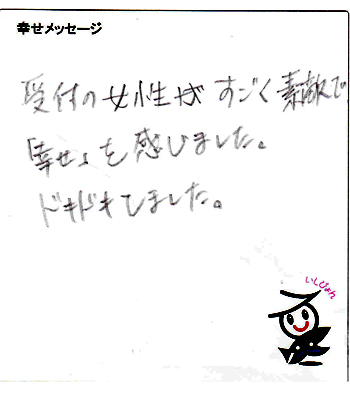 幸せメッセージ
受付の女性がすごく素敵で
「幸せ」を感じました。
ドキドキしました。
いしぴょん